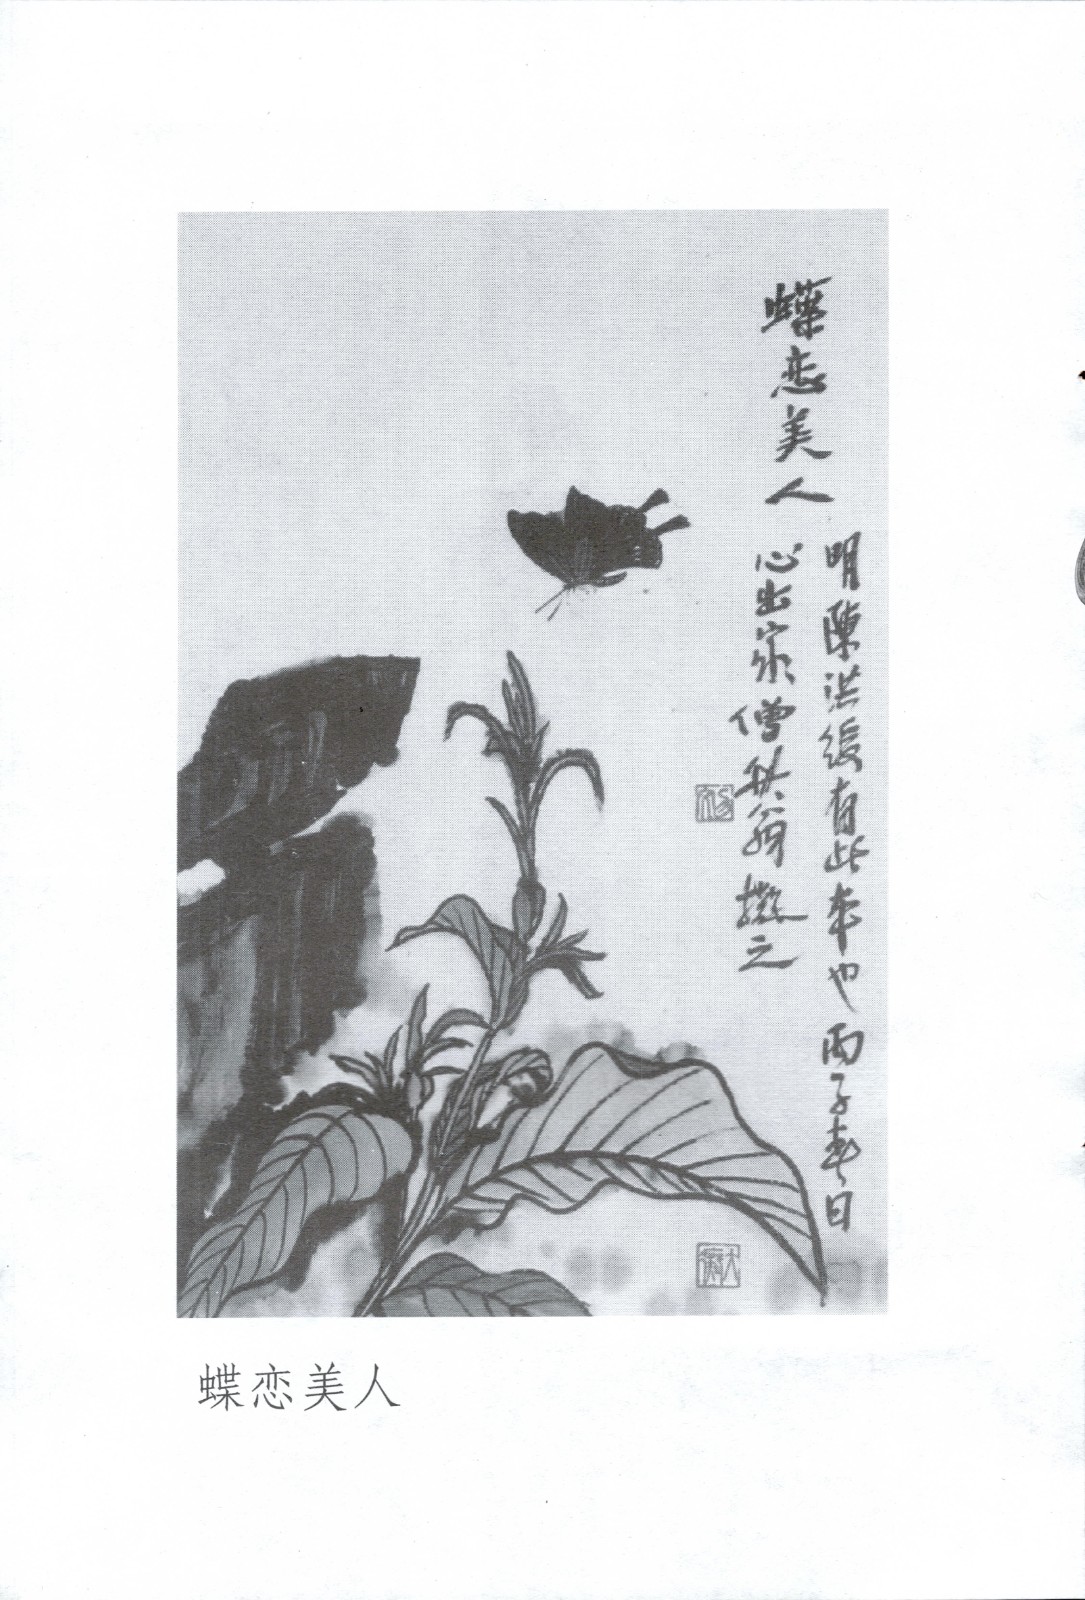 蝶恋美人
明陳洪綬有此本也丙子春日
心出家僧秋翁擬之
蝶恋美人